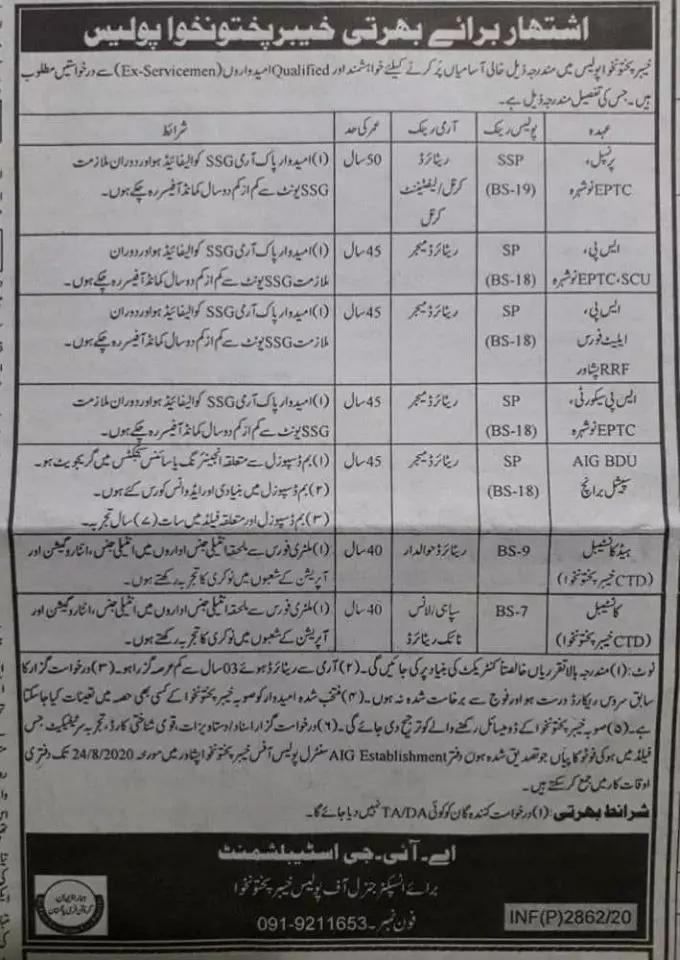 اشتھار برائے بھرتی خیبر پختونخوا پولیس
خیبر پختونخوا پولیس میں مندرجہ ذیل خالی آسامیاں پُر کرنے کیلئے خواہشمند اور Qualified امیدواروں (Ex-Servicemen) سے درخواستیں مطلوب
ہیں۔ جس کی تفصیل مندرجہ ذیل ہے۔
عہدہ پولیس رینک آرمی رینک عمر کی حد شرائط
پرنسپل، SSP ریٹائرڈ 50 سال (۱) امیدوار پاک آرمی SSG کوالیفائیڈ ہو اور دوران ملازمت
EPTC نوشہرہ (BS-19) کرنل/لیفٹیننٹ SSG یونٹ سے کم از کم دو سال کمانڈ آفیسر رہ چکے ہوں۔
کرنل
ایس پی، SP ریٹائرڈ میجر 45 سال (۱) امیدوار پاک آرمی SSG کوالیفائیڈ ہو اور دوران
EPTC،SCU نوشہرہ (BS-18) ملازمت SSG یونٹ سے کم از کم دو سال کمانڈ آفیسر رہ چکے ہوں۔
ایس پی، SP ریٹائرڈ میجر 45 سال (۱) امیدوار پاک آرمی SSG کوالیفائیڈ ہو اور دوران
ایلیٹ فورس (BS-18) ملازمت SSG یونٹ سے کم از کم دو سال کمانڈ آفیسر رہ چکے ہوں۔
RRF پشاور
ایس پی سیکورٹی، SP ریٹائرڈ میجر 45 سال (۱) امیدوار پاک آرمی SSG کوالیفائیڈ ہو اور دوران ملازمت
EPTC نوشہرہ (BS-18) SSG یونٹ سے کم از کم دو سال کمانڈ آفیسر رہ چکے ہوں۔
AIG BDU SP ریٹائرڈ میجر 45 سال (۱) بم ڈسپوزل سے متعلقہ انجینئرنگ یا سائنس سبجیکٹس میں گریجویٹ ہو۔
سپیشل برانچ (BS-18) (۲) بم ڈسپوزل میں بنیادی اور ایڈوانس کورس کئے ہوں۔
(۳) بم ڈسپوزل اور متعلقہ فیلڈ میں سات (۷) سال تجربہ۔
ہیڈ کانسٹیبل BS-9 ریٹائرڈ حوالدار 40 سال (۱) ملٹری فورس سے ملحقہ انٹیلی جنس اداروں میں انٹیلی جنس، انٹاروگیشن اور
(CTD خیبر پختونخوا) آپریشن کے شعبوں میں نوکری کا تجربہ رکھتے ہوں۔
کانسٹیبل BS-7 سپاہی/لانس 40 سال (۱) ملٹری فورس سے ملحقہ انٹیلی جنس اداروں میں انٹیلی جنس، انٹاروگیشن اور
(CTD خیبر پختونخوا) نائک ریٹائرڈ آپریشن کے شعبوں میں نوکری کا تجربہ رکھتے ہوں۔
نوٹ: (۱) مندرجہ بالا تقرریاں خالصتاً کنٹریکٹ کی بنیاد پر کی جائیں گی۔ (۲) آرمی سے ریٹائرڈ ہوئے 03 سال سے کم عرصہ گزرا ہو۔ (۳) درخواست گزار کا
سابق سروس ریکارڈ درست ہو اور فوج سے برخاست شدہ نہ ہوں۔ (۴) منتخب شدہ امیدوار کو صوبہ خیبر پختونخوا کے کسی بھی حصہ میں تعینات کیا جا سکتا
ہے۔ (۵) صوبہ خیبر پختونخوا کے ڈومیسائل رکھنے والے کو ترجیح دی جائے گی۔ (۶) درخواست گزار اسناد/دستاویزات، قومی شناختی کارڈ، تجربہ سرٹیفکیٹ جس
فیلڈ میں ہو کی فوٹو کاپیاں جو تصدیق شدہ ہوں دفتر AIG Establishment سنٹرل پولیس آفس خیبر پختونخوا پشاور میں مورخہ 24/8/2020 تک دفتری
اوقات کار میں جمع کر سکتے ہیں۔
شرائط بھرتی: (۱) درخواست کنندہ گان کو کوئی TA/DA نہیں دیا جائے گا۔
اے۔آئی۔جی اسٹیبلشمنٹ
برائے انسپکٹر جنرل آف پولیس خیبر پختونخوا
فون نمبر۔ 091-9211653
INF(P)2862/20